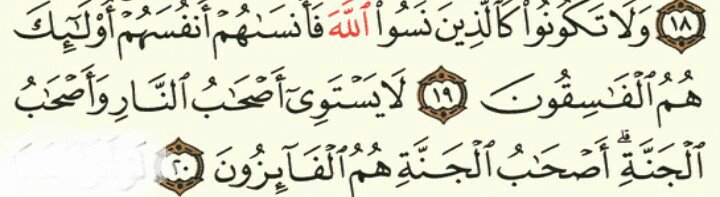 ١٨ وَلَا تَكُونُوا۟ كَٱلَّذِينَ نَسُوا۟ ٱللَّهَ فَأَنسَىٰهُمْ أَنفُسَهُمْ أُو۟لَـٰٓئِكَ
هُمُ ٱلْفَـٰسِقُونَ ١٩ لَا يَسْتَوِىٓ أَصْحَـٰبُ ٱلنَّارِ وَأَصْحَـٰبُ
ٱلْجَنَّةِ ۚ أَصْحَـٰبُ ٱلْجَنَّةِ هُمُ ٱلْفَآئِزُونَ ٢٠